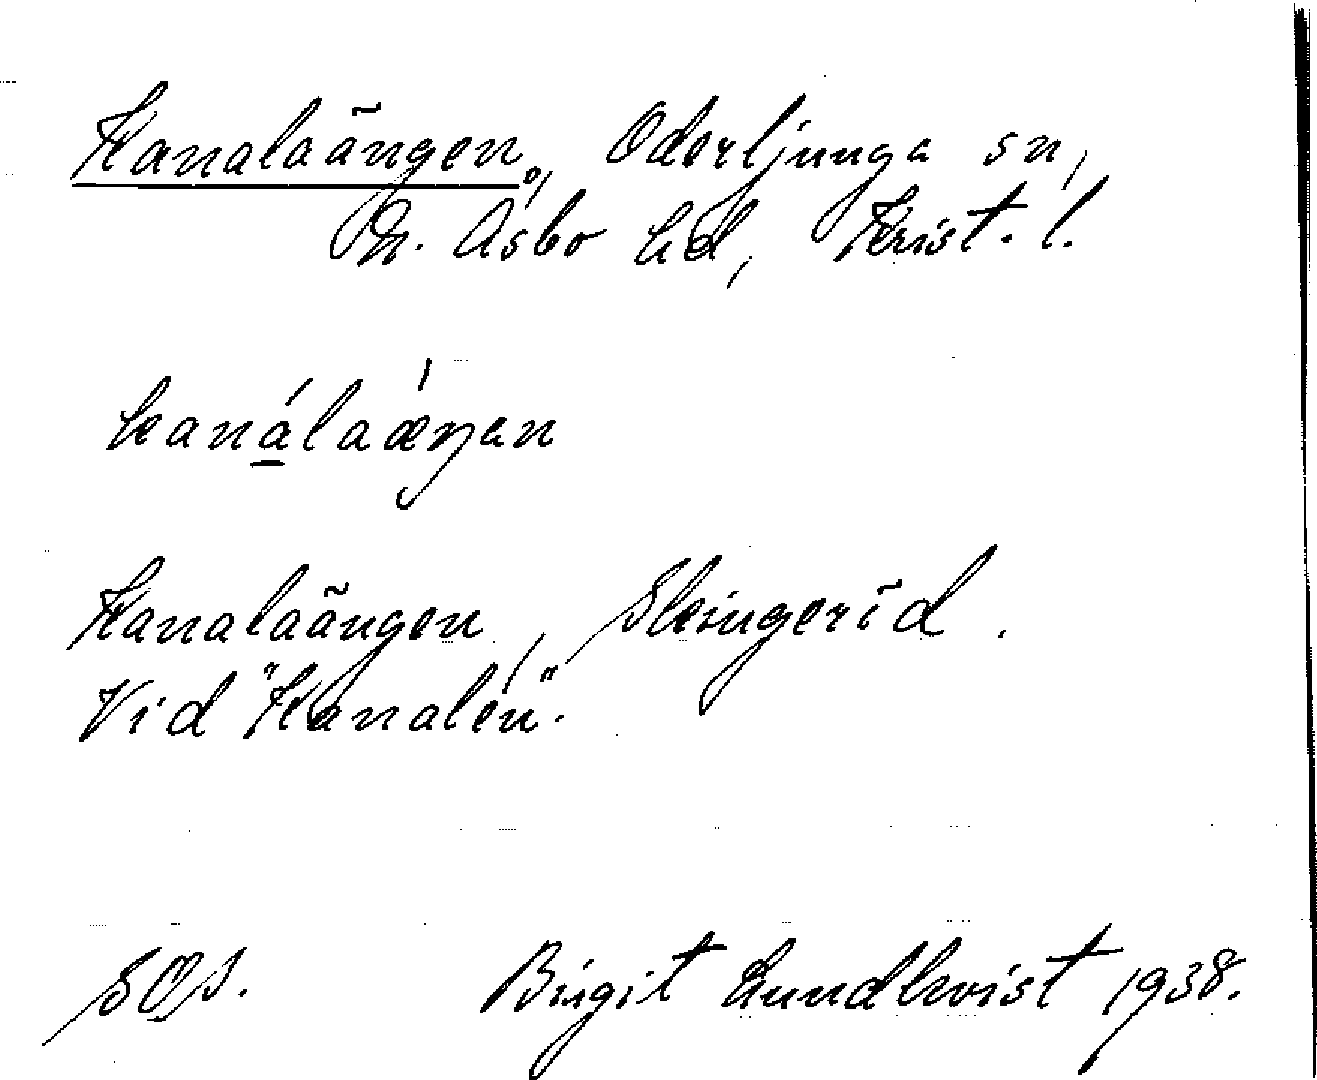 Kanalaängen, Oderljunga sn,
N. Åsbo hd, Krist. l.
kanálaæŋen
Kanalaängen, Skingeröd.
Vid "Kanalen".
SOS. Birgit Lundkvist 1938.